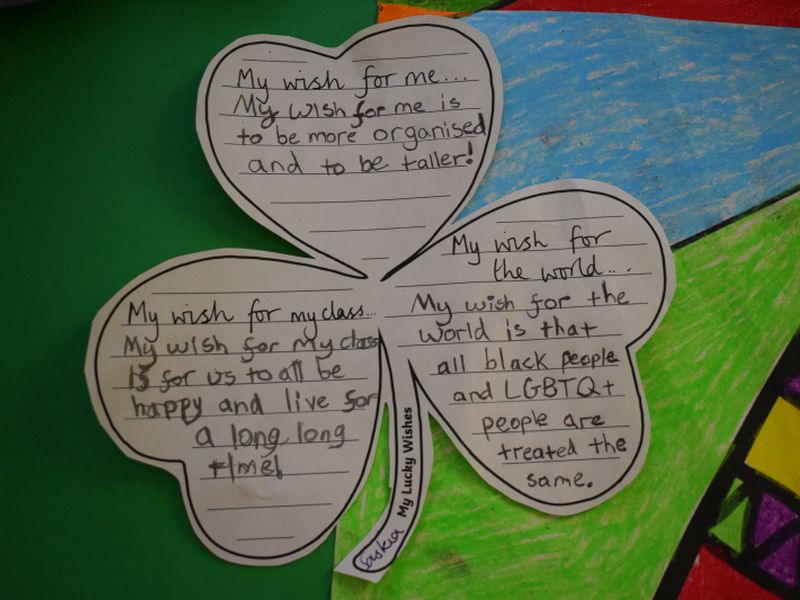 My wish for me...
My wish for me is
to be more organised
and to be taller!
My wish for my class...
My wish for my class
is for us to all be
happy and live for
a long long
time!
My wish for
the world...
My wish for the
world is that
all black people
and LGBTQ+
people are
treated the
same.
My Lucky Wishes
Saskia